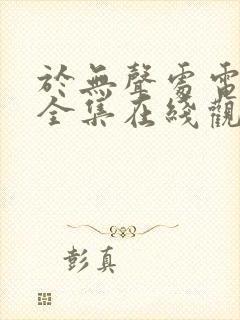 於無聲處電
全集在綫觀
彭真